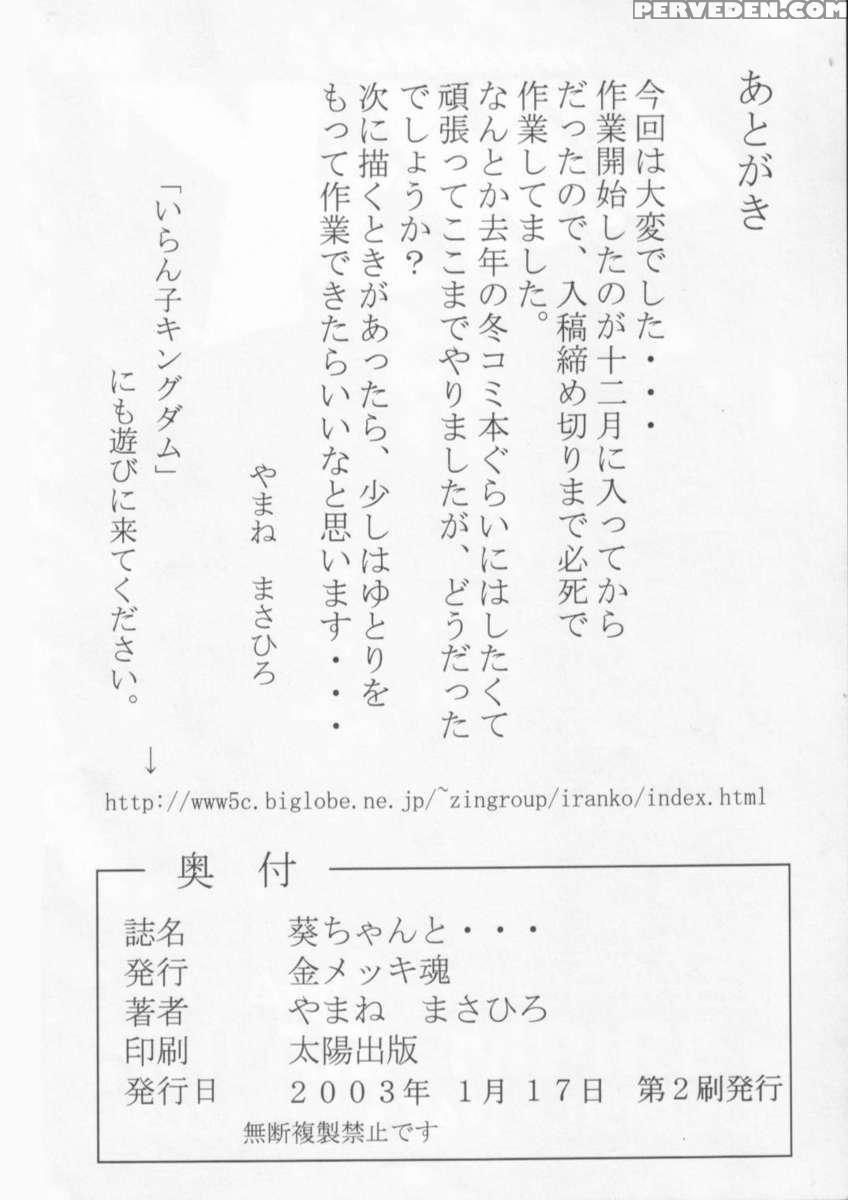 PERVEDEN.COM
あとがき
今回は大変でした・・・
作業開始したのが十二月に入ってから
だったので、入稿締め切りまで必死で
作業してました。
なんとか去年の冬コミ本ぐらいにはしたくて
頑張ってここまでやりましたが、どうだった
でしょうか？
次に描くときがあったら、少しはゆとりを
もって作業できたらいいなと思います・・・
やまね　まさひろ
「いらん子キングダム」
にも遊びに来てください。
↓
http://www5c.biglobe.ne.jp/~zingroup/iranko/index.html
奥　付
誌名　葵ちゃんと・・・
発行　金メッキ魂
著者　やまね　まさひろ
印刷　太陽出版
発行日　２００３年　１月１７日　第２刷発行
無断複製禁止です